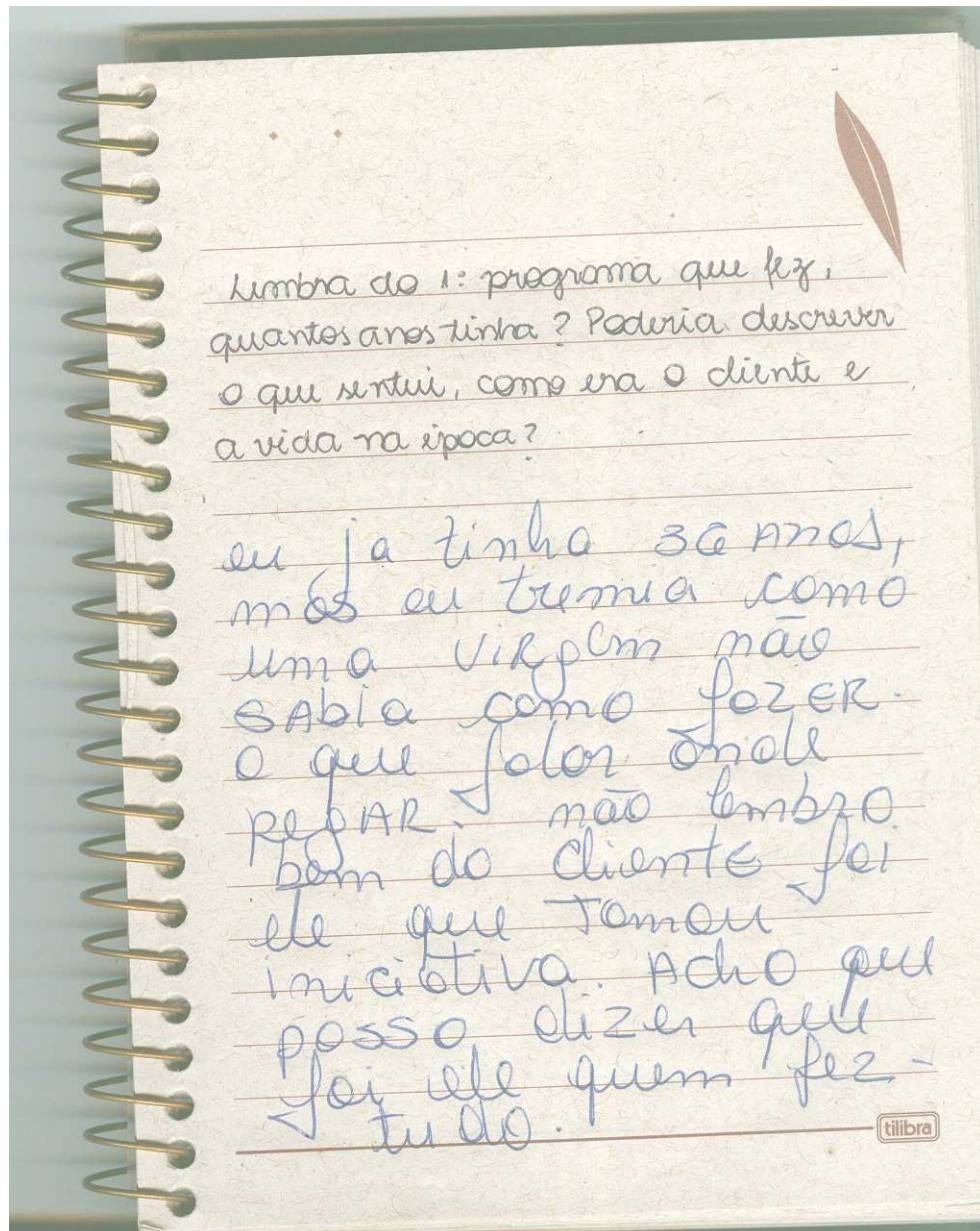 Lembra do 1º programa que fez,
quantos anos tinha? Poderia descrever
o que sentiu, como era o cliente e
a vida na época?
eu ja tinha 36 anos,
mas eu tremia como
uma VIRgem não
SAbia como fazER
o que falar onde
pegAR. não lembro
bem do clientE foi
ele que Tomou
iniciativa. AchO que
posso dizer que
foi ele quem fez-
tudo.
tilibra